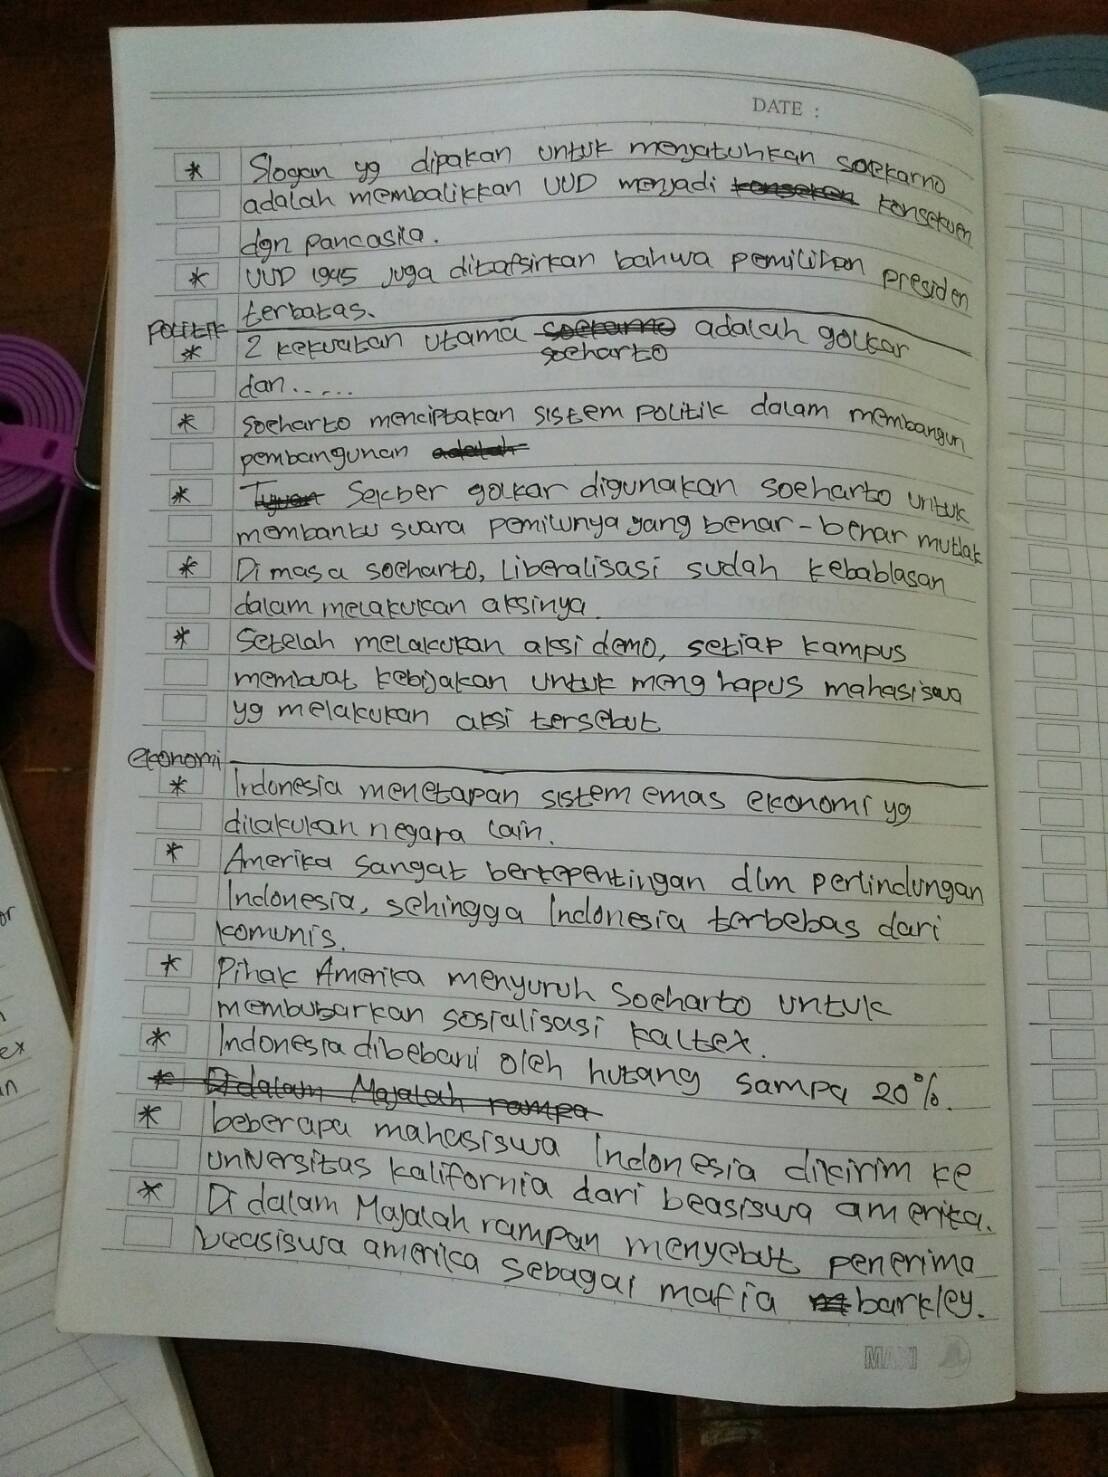 DATE :
* Slogan yg dipakan untuk menjatuhkan soekarno
adalah membalikkan UUD menjadi konsekuen
dgn pancasila.
* UUD 1945 juga ditafsirkan bahwa pemilihan presiden
terbatas.
Politik
* 2 kekuatan utama soekarno adalah golkar
soeharto
dan.....
* Soeharto menciptakan sistem politik dalam membangun
pembangunan adalah
* Tujuan Sekber golkar digunakan soeharto untuk
membantu suara pemilunya yang benar-benar mutlak
* Di masa soeharto, Liberalisasi sudah kebablasan
dalam melakukan aksinya.
* Setelah melakukan aksi demo, setiap kampus
membuat kebijakan untuk menghapus mahasiswa
yg melakukan aksi tersebut
ekonomi
* Indonesia menetapan sistem emas ekonomi yg
dilakukan negara lain.
* Amerika sangat berkepentingan dlm perlindungan
Indonesia, sehingga Indonesia terbebas dari
komunis.
* Pihak Amerika menyuruh Soeharto untuk
membubarkan sosialisasi kaltex.
* Indonesia dibebani oleh hutang sampa 20%.
* Didalam Majalah rampa
* beberapa mahasiswa Indonesia dikirim ke
Universitas kalifornia dari beasiswa amerika.
* Di dalam Majalah rampan menyebut penerima
beasiswa amerika sebagai mafia barkley.